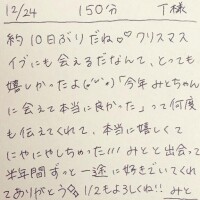 12/24 150分 T様
約10日ぶりだね♡ クリスマス
イブにも会えるだなんて、とっても
嬉しかったよ(๑'ᵕ'๑)「今年みとちゃん
に会えて本当に良かった」って何度
も伝えてくれて、本当に嬉しくて
にやにやしちゃった!!! みとと出会って
半年間ずっと一途に好きでいてくれ
てありがとう 1/2もよろしくね!! みと